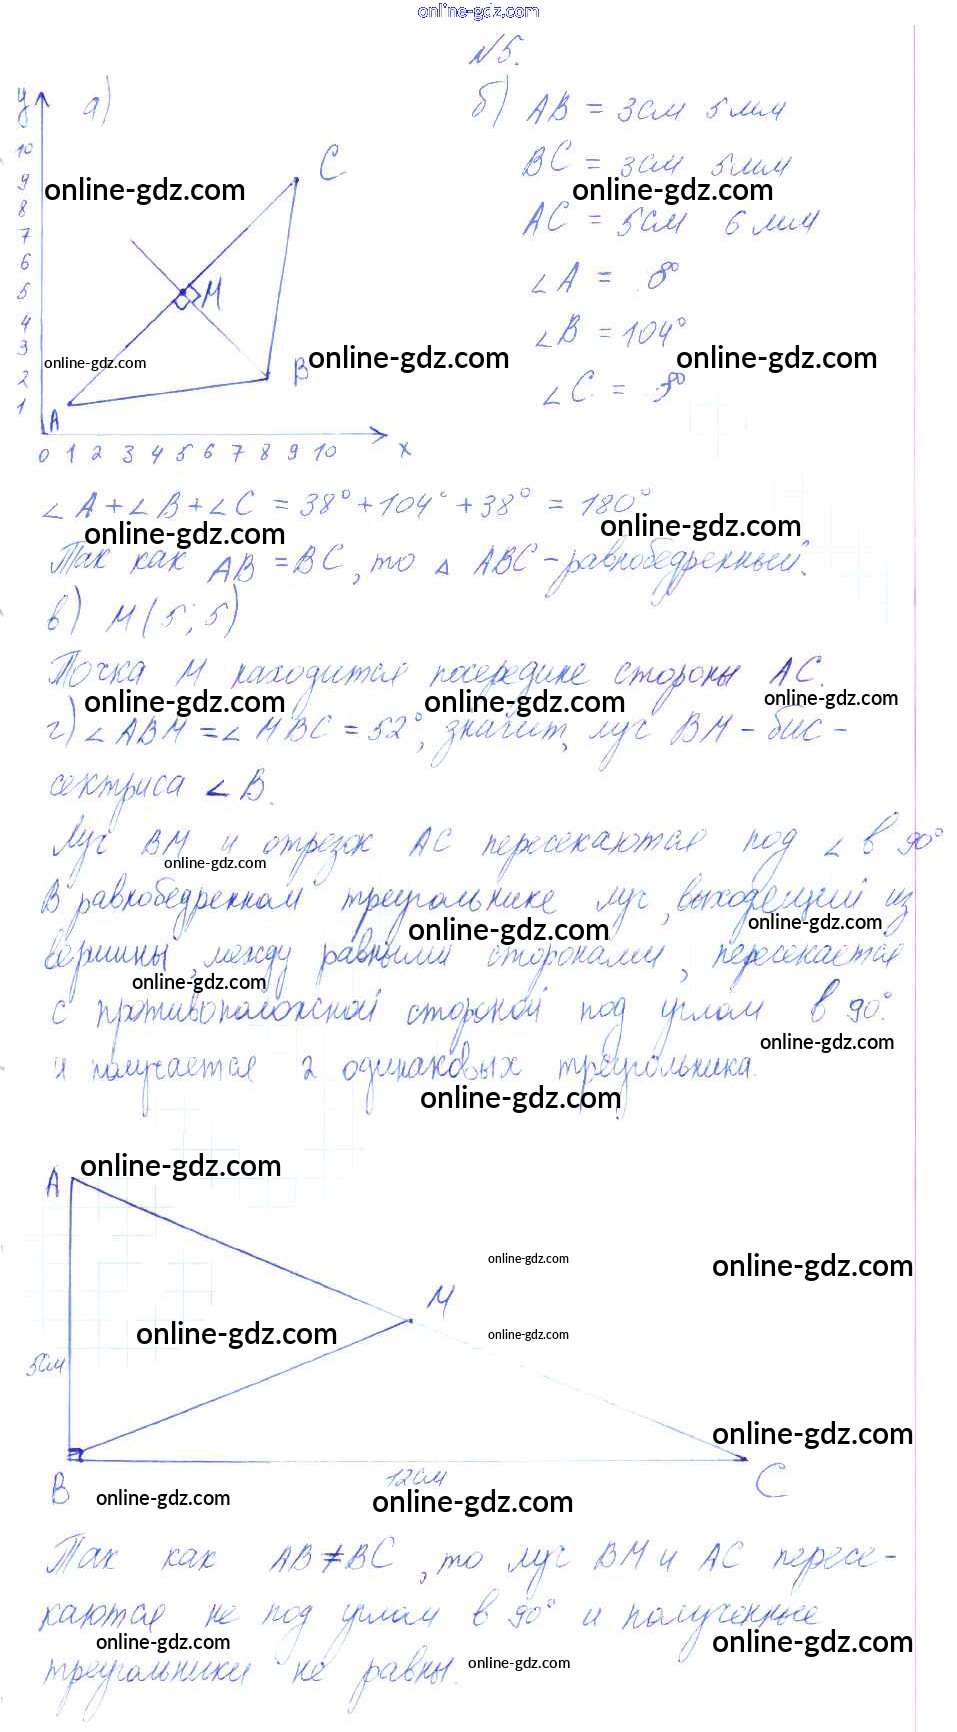 online-gdz.com
№5.
y
а)
б) AB = 3см 5мм
10
C
BC = 3см 5мм
9
online-gdz.com
online-gdz.com
8
AC = 5см 6мм
7
6
∠A = 8°
5
M
4
∠B = 104°
3
online-gdz.com
online-gdz.com
online-gdz.com
2
B
∠C = 8°
1
A
0 1 2 3 4 5 6 7 8 9 10 x
∠A+∠B+∠C = 38°+104°+38° = 180°
online-gdz.com
online-gdz.com
Так как AB = BC, то △ ABC - равнобедренный.
в) M(5; 5)
Точка M находится посередине стороны AC.
online-gdz.com
online-gdz.com
online-gdz.com
г) ∠ABM = ∠MBC = 52°, значит, луч BM - бис-
сектриса ∠B.
Луч BM и отрезок AC пересекаются под ∠ в 90°
online-gdz.com
В равнобедренном треугольнике луч, выходящий из
online-gdz.com
online-gdz.com
вершины, между равными сторонами, пересекается
online-gdz.com
с противоположной стороной под углом в 90°.
online-gdz.com
и получается 2 одинаковых треугольника.
online-gdz.com
online-gdz.com
A
online-gdz.com
online-gdz.com
M
online-gdz.com
online-gdz.com
5см
online-gdz.com
12см
B
C
online-gdz.com
online-gdz.com
Так как AB ≠ BC, то луч BM и AC пересе-
каются не под углом в 90° и полученные
online-gdz.com
online-gdz.com
треугольники не равны.
online-gdz.com